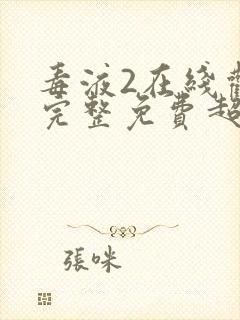 毒液2在綫
完整免費超
張咪